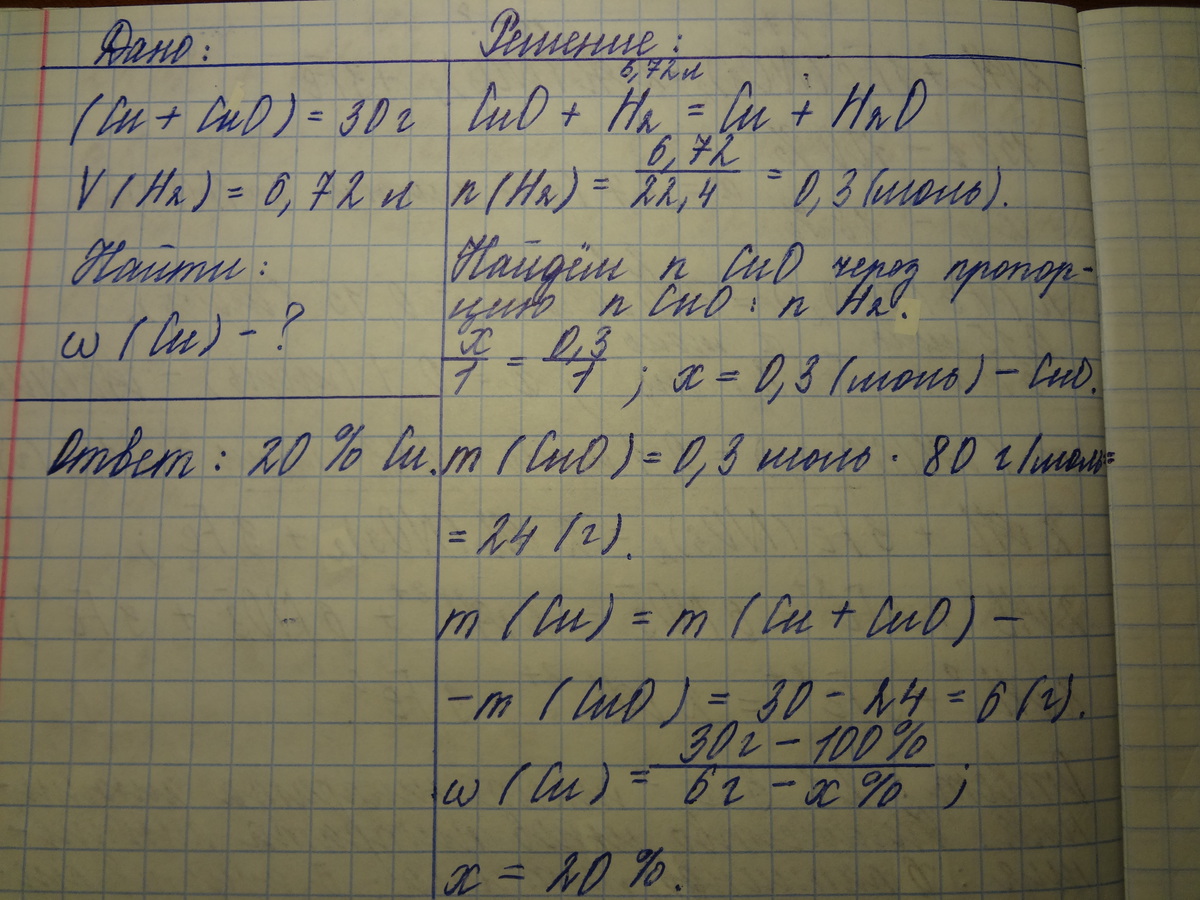 Дано:
(Cu + CuO) = 30 г
V (H₂) = 6,72 л
Найти:
ω (Cu) - ?
Ответ: 20 % Cu.
Решение:
6,72 л
CuO + H₂ = Cu + H₂O
n (H₂) = 6,72 / 22,4 = 0,3 (моль).
Найдём n CuO через пропор-
цию n CuO : n H₂.
x / 1 = 0,3 / 1 ; x = 0,3 (моль) - CuO.
m (CuO) = 0,3 моль · 80 г/моль =
= 24 (г).
m (Cu) = m (Cu + CuO) -
- m (CuO) = 30 - 24 = 6 (г).
ω (Cu) = 30 г - 100 % / 6 г - x % ;
x = 20 %.